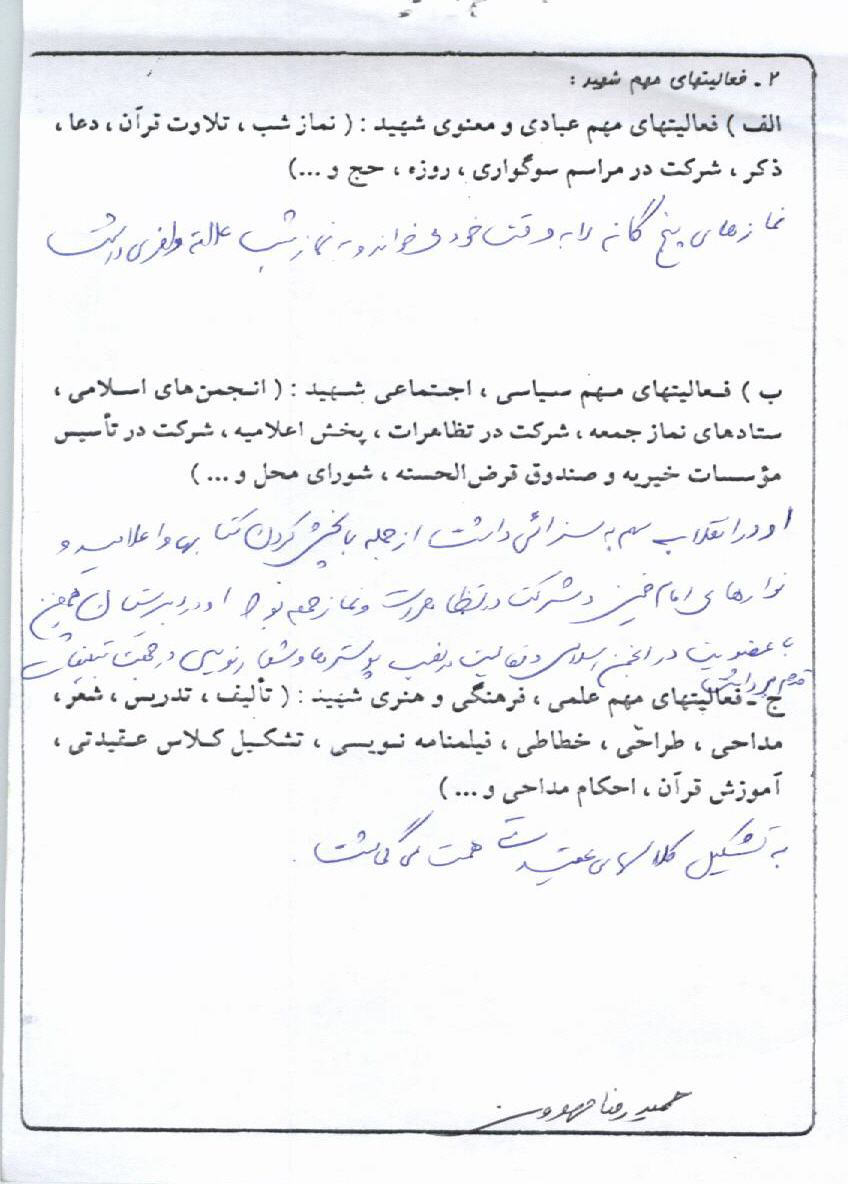 ۲ ـ فعالیتهای مهم شهید :
الف ) فعالیتهای مهم عبادی و معنوی شهید : ( نماز شب ، تلاوت قرآن ، دعا ،
ذکر ، شرکت در مراسم سوگواری ، روزه ، حج و ...)
نمازهای پنج گانه را به وقت خود می خواند و به نماز شب علاقه وافری داشت
ب ) فعالیتهای مهم سیاسی ، اجتماعی شهید : ( انجمن‌های اسلامی ،
ستادهای نماز جمعه ، شرکت در تظاهرات ، پخش اعلامیه ، شرکت در تأسیس
مؤسسات خیریه و صندوق قرض‌الحسنه ، شورای محل و ... )
او در انقلاب سهم به سزائی داشت از جمله با پخش کردن کتابها و اعلامیه و
نوارهای امام خمینی و شرکت در تظاهرات و نماز جمعه او در دبیرستان همچنین
با عضویت در انجمن اسلامی و فعالیت در نصب پوسترها و شعار نویسی در جهت تبلیغات
ج ـ فعالیتهای مهم علمی ، فرهنگی و هنری شهید : ( تألیف ، تدریس ، شعر ،
مداحی ، طراحی ، خطاطی ، فیلمنامه نویسی ، تشکیل کلاس عقیدتی ،
آموزش قرآن ، احکام مداحی و ... )
به تشکیل کلاسهای عقیدتی همت می گماشت .
حمید رضا